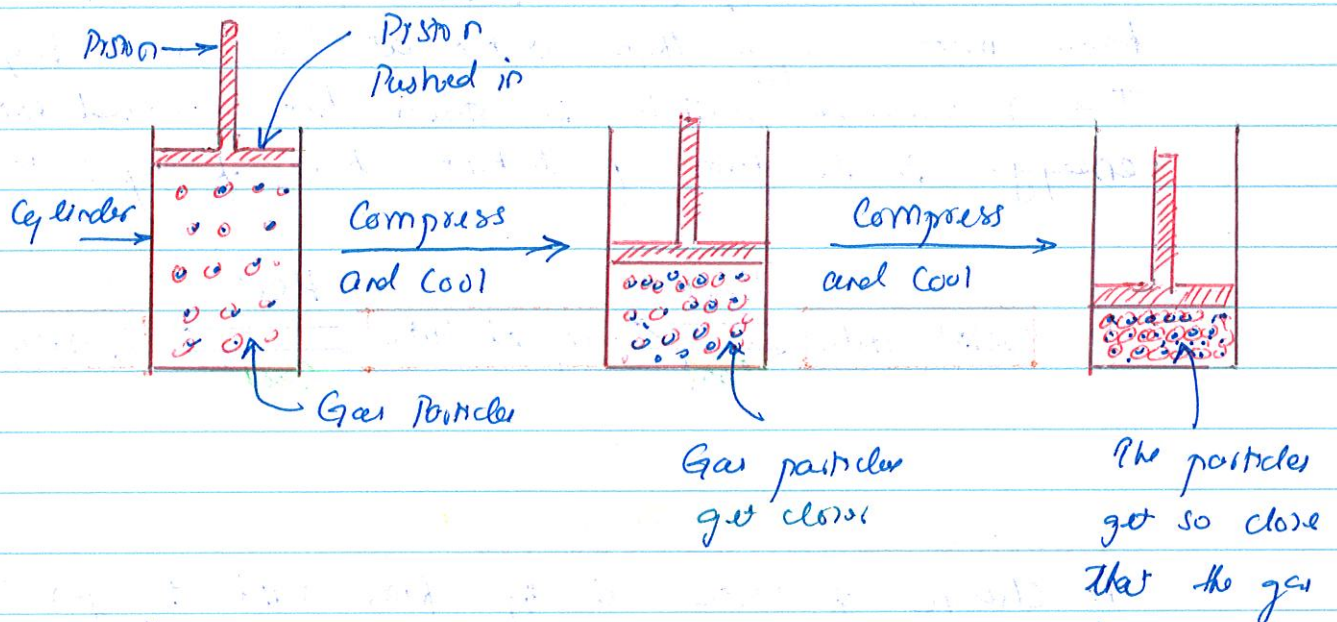 Piston
Piston
Pushed in
Cylinder
Compress
and Cool
Compress
and Cool
Gas Particles
Gas particles
get closer
The particles
get so close
that the gas